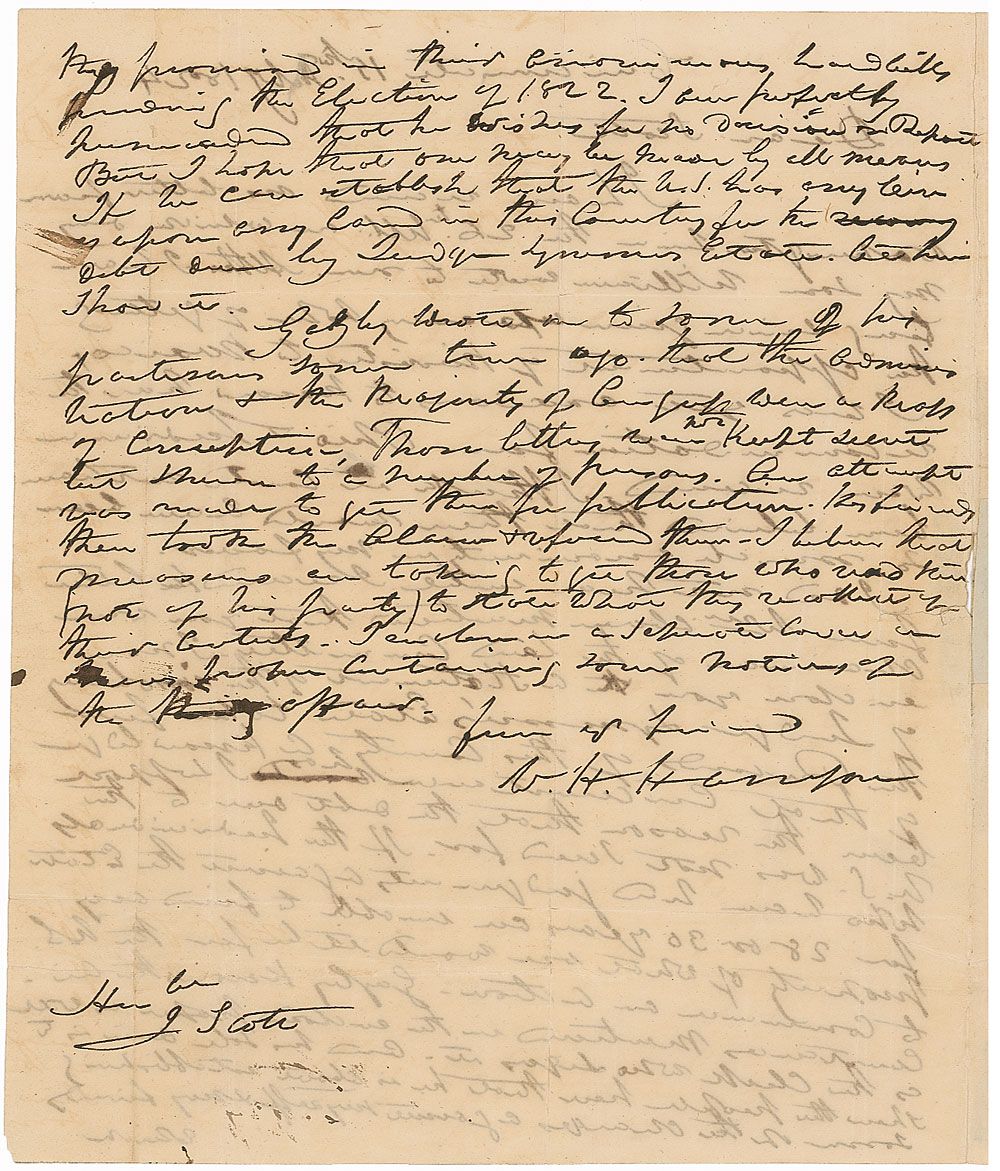 they promised in their handbills
pending the Election of 1822. I am perfectly
persuaded that he wishes for no Decision or Report
But I hope that one may be made by all means
If he can establish that the U.S. has any lien
upon any Land in this Country for the
debt due by Judge Symmes Estate. let him
show it.
Gazlay wrote on to some of his
partisans some time ago. that the adminis
tration & the Majority of Congress were a Mass
of Corruption, Those letters were not Kept secret
but shewn to a number of persons. An attempt
was made to get them for publication. his friends
then took the Alarm & refused them - I believe that
measures are taking to get those who read them
(not of his party) to state what they recollect of
their Contents. I enclose in a Separate Cover a
news paper Containing some Notices of
the affair.
Your friend
W. H. Harrison
Honble
J Scott